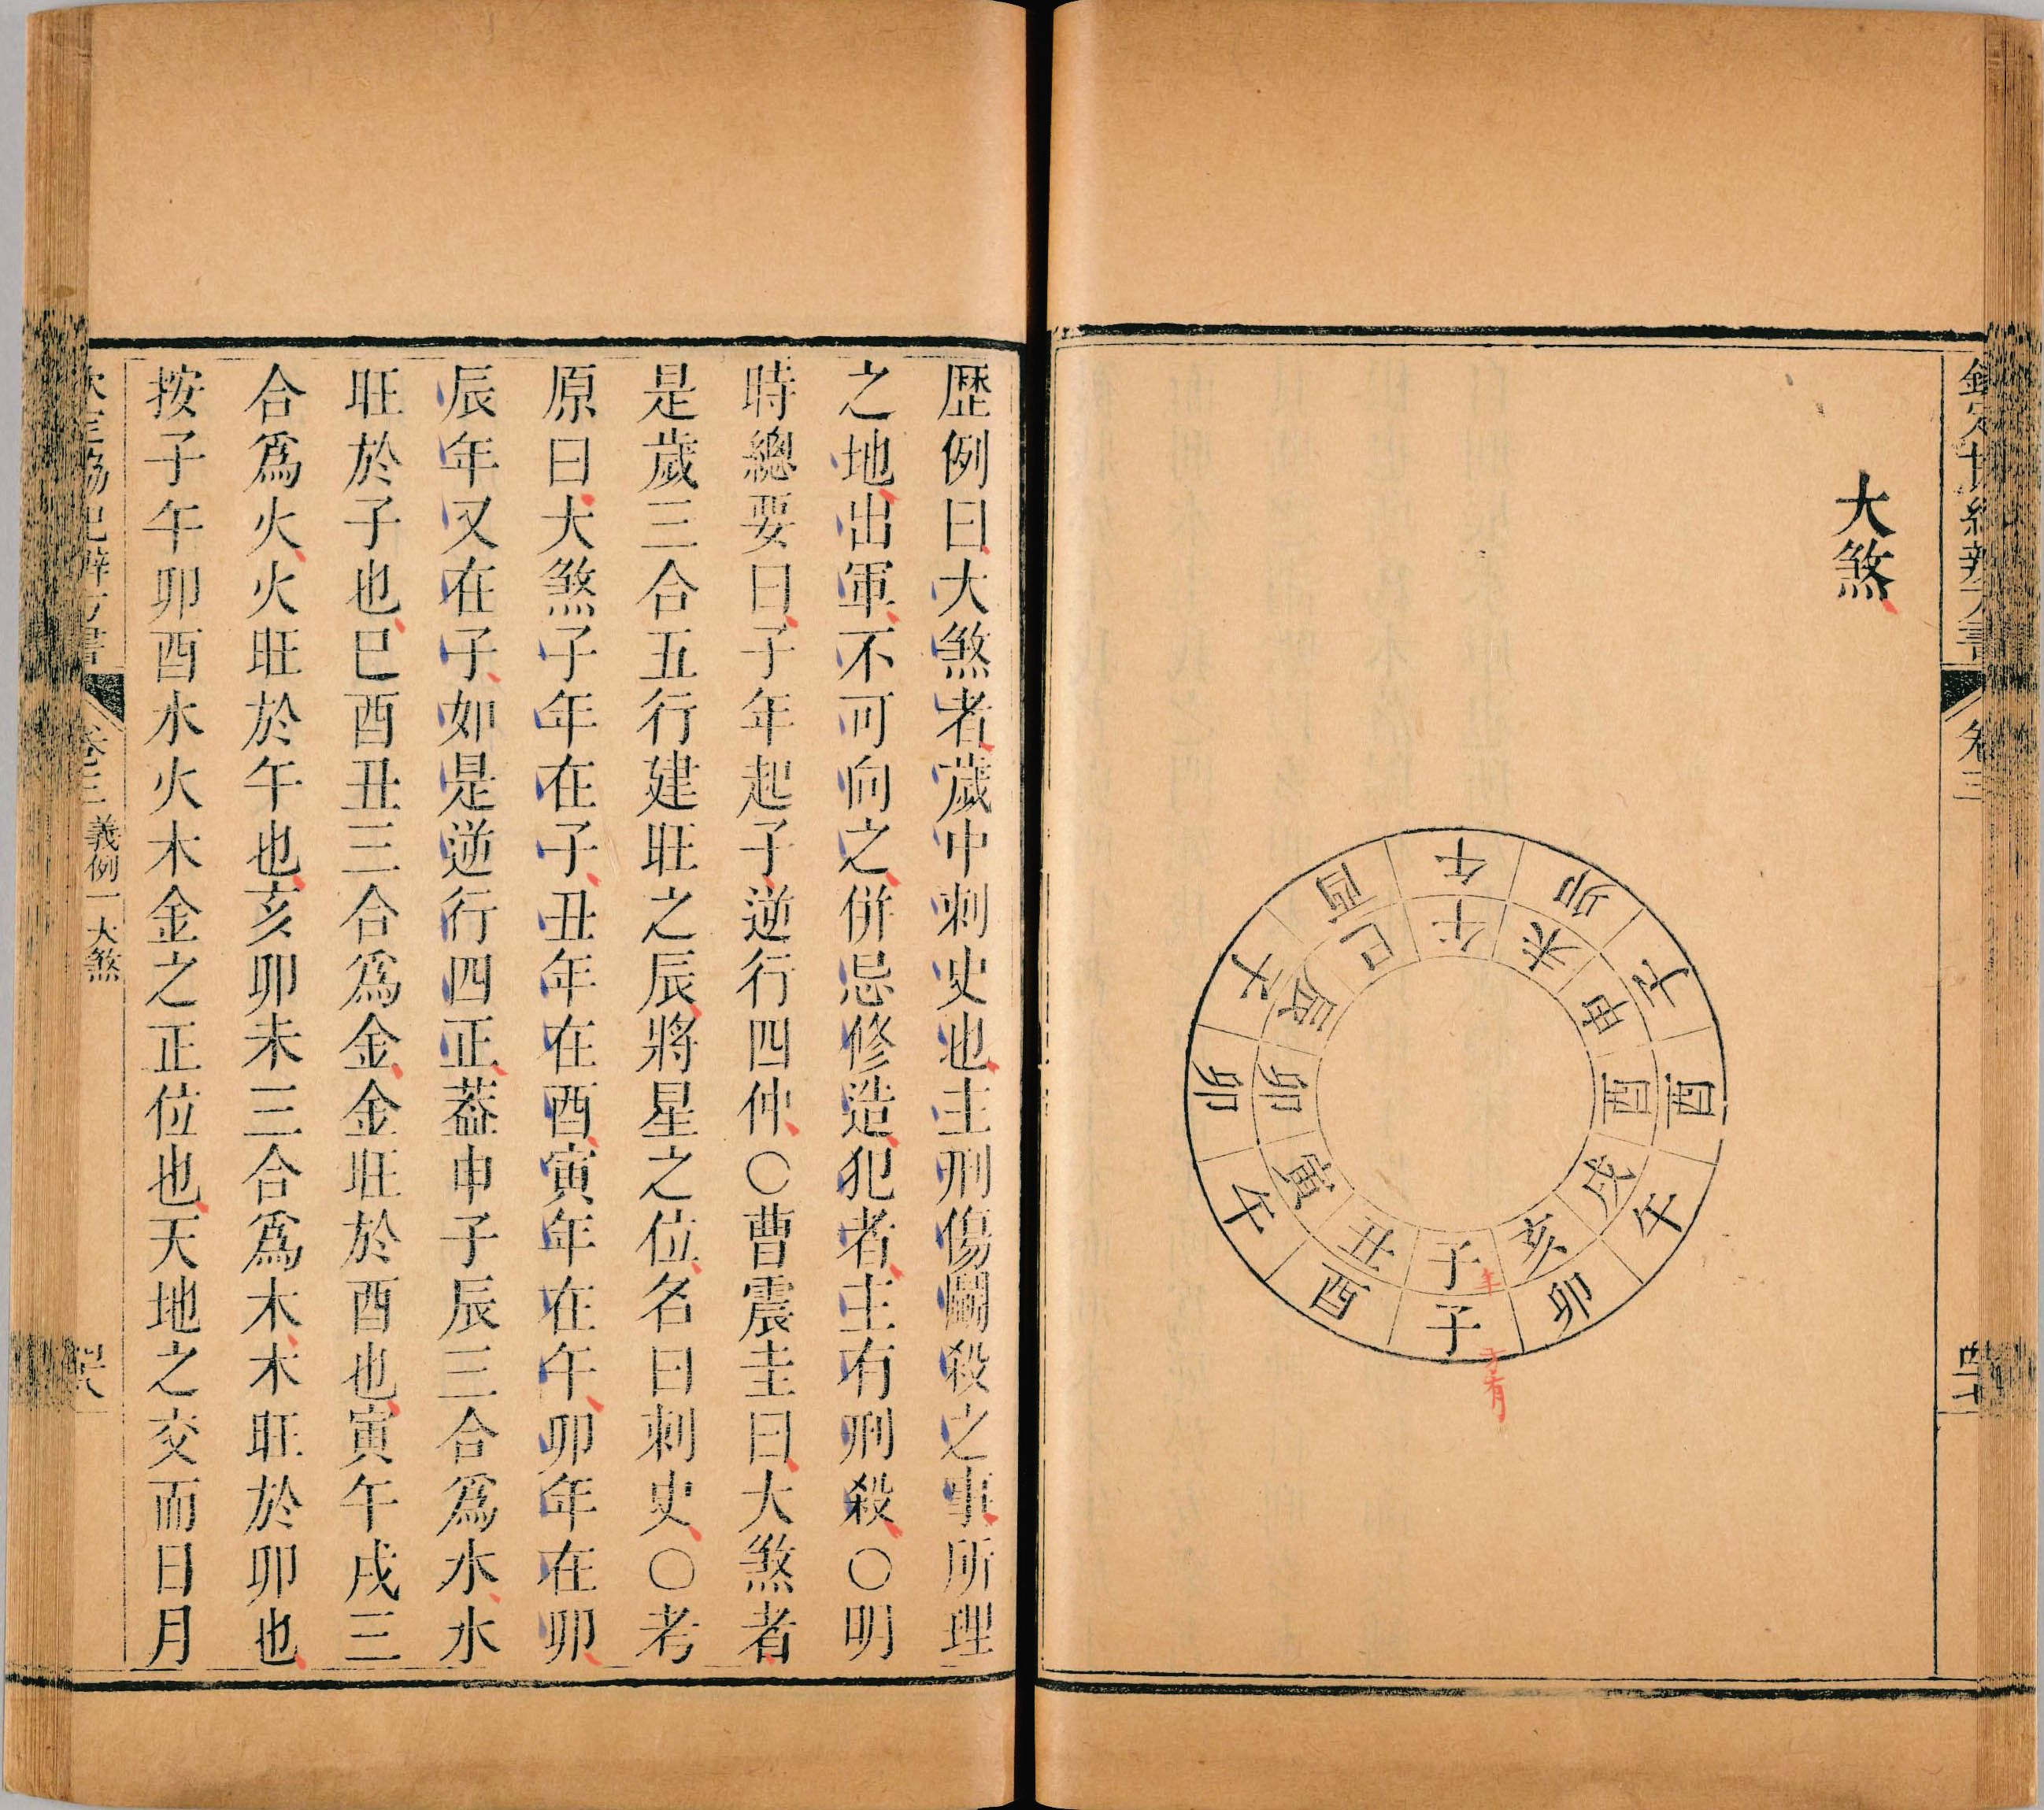 大煞
午
卯
子
酉
午
卯
子
酉
午
卯
子
酉
午
未
申
酉
戌
亥
子
丑
寅
卯
辰
巳
年
卷三
歷例曰大煞者歲中刺史也主刑傷鬭殺之事所理
之地出軍不可向之併忌修造犯者主有刑殺○明
時總要曰子年起子逆行四仲○曹震圭曰大煞者
是歲三合五行建旺之辰將星之位名曰刺史○考
原曰大煞子年在子丑年在酉寅年在午卯年在卯
辰年又在子如是逆行四正葢申子辰三合爲水水
旺於子也巳酉丑三合爲金金旺於酉也寅午戌三
合爲火火旺於午也亥卯未三合爲木木旺於卯也
按子午卯酉水火木金之正位也天地之交而日月
卷三
義例一大煞